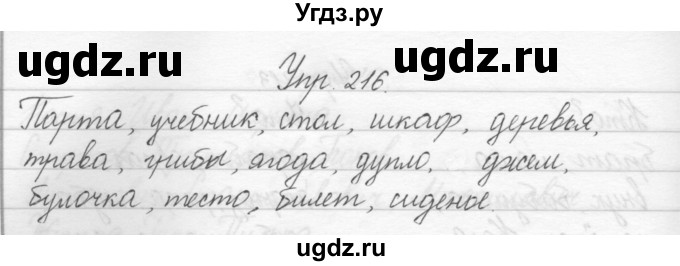 Угдз.ру
ugdz.ru ugdz.ru
Упр. 216.
Парта, учебник, стол, шкаф, деревья,
трава, грибы, ягода, дупло, джем,
булочка, тесто, билет, сиденье.
ugdz.ru ugdz.ru